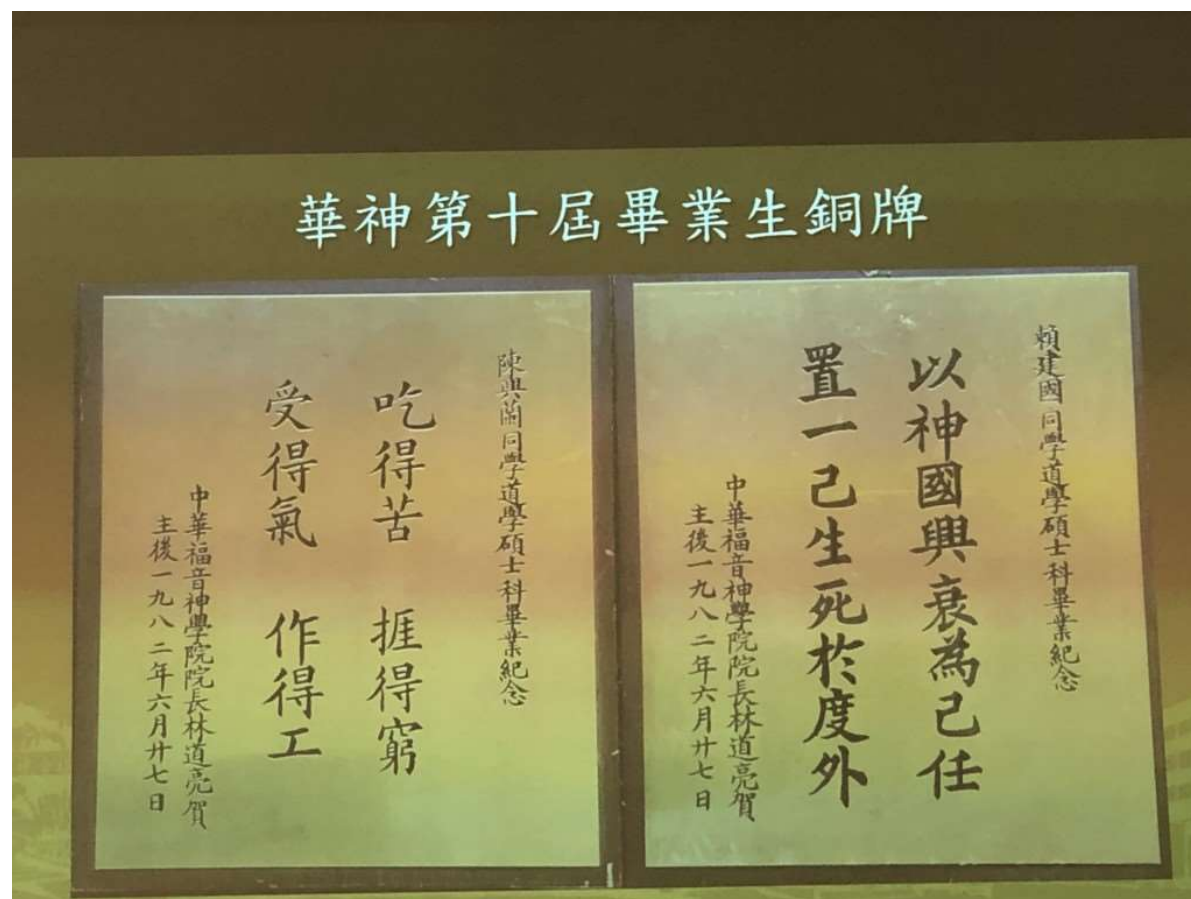 華神第十屆畢業生銅牌
賴建國同學道學碩士科畢業紀念
以神國興衰為己任
置一己生死於度外
中華福音神學院院長林道亮賀
主後一九八二年六月廿七日
陳興蘭同學道學碩士科畢業紀念
吃得苦 捱得窮
受得氣 作得工
中華福音神學院院長林道亮賀
主後一九八二年六月廿七日